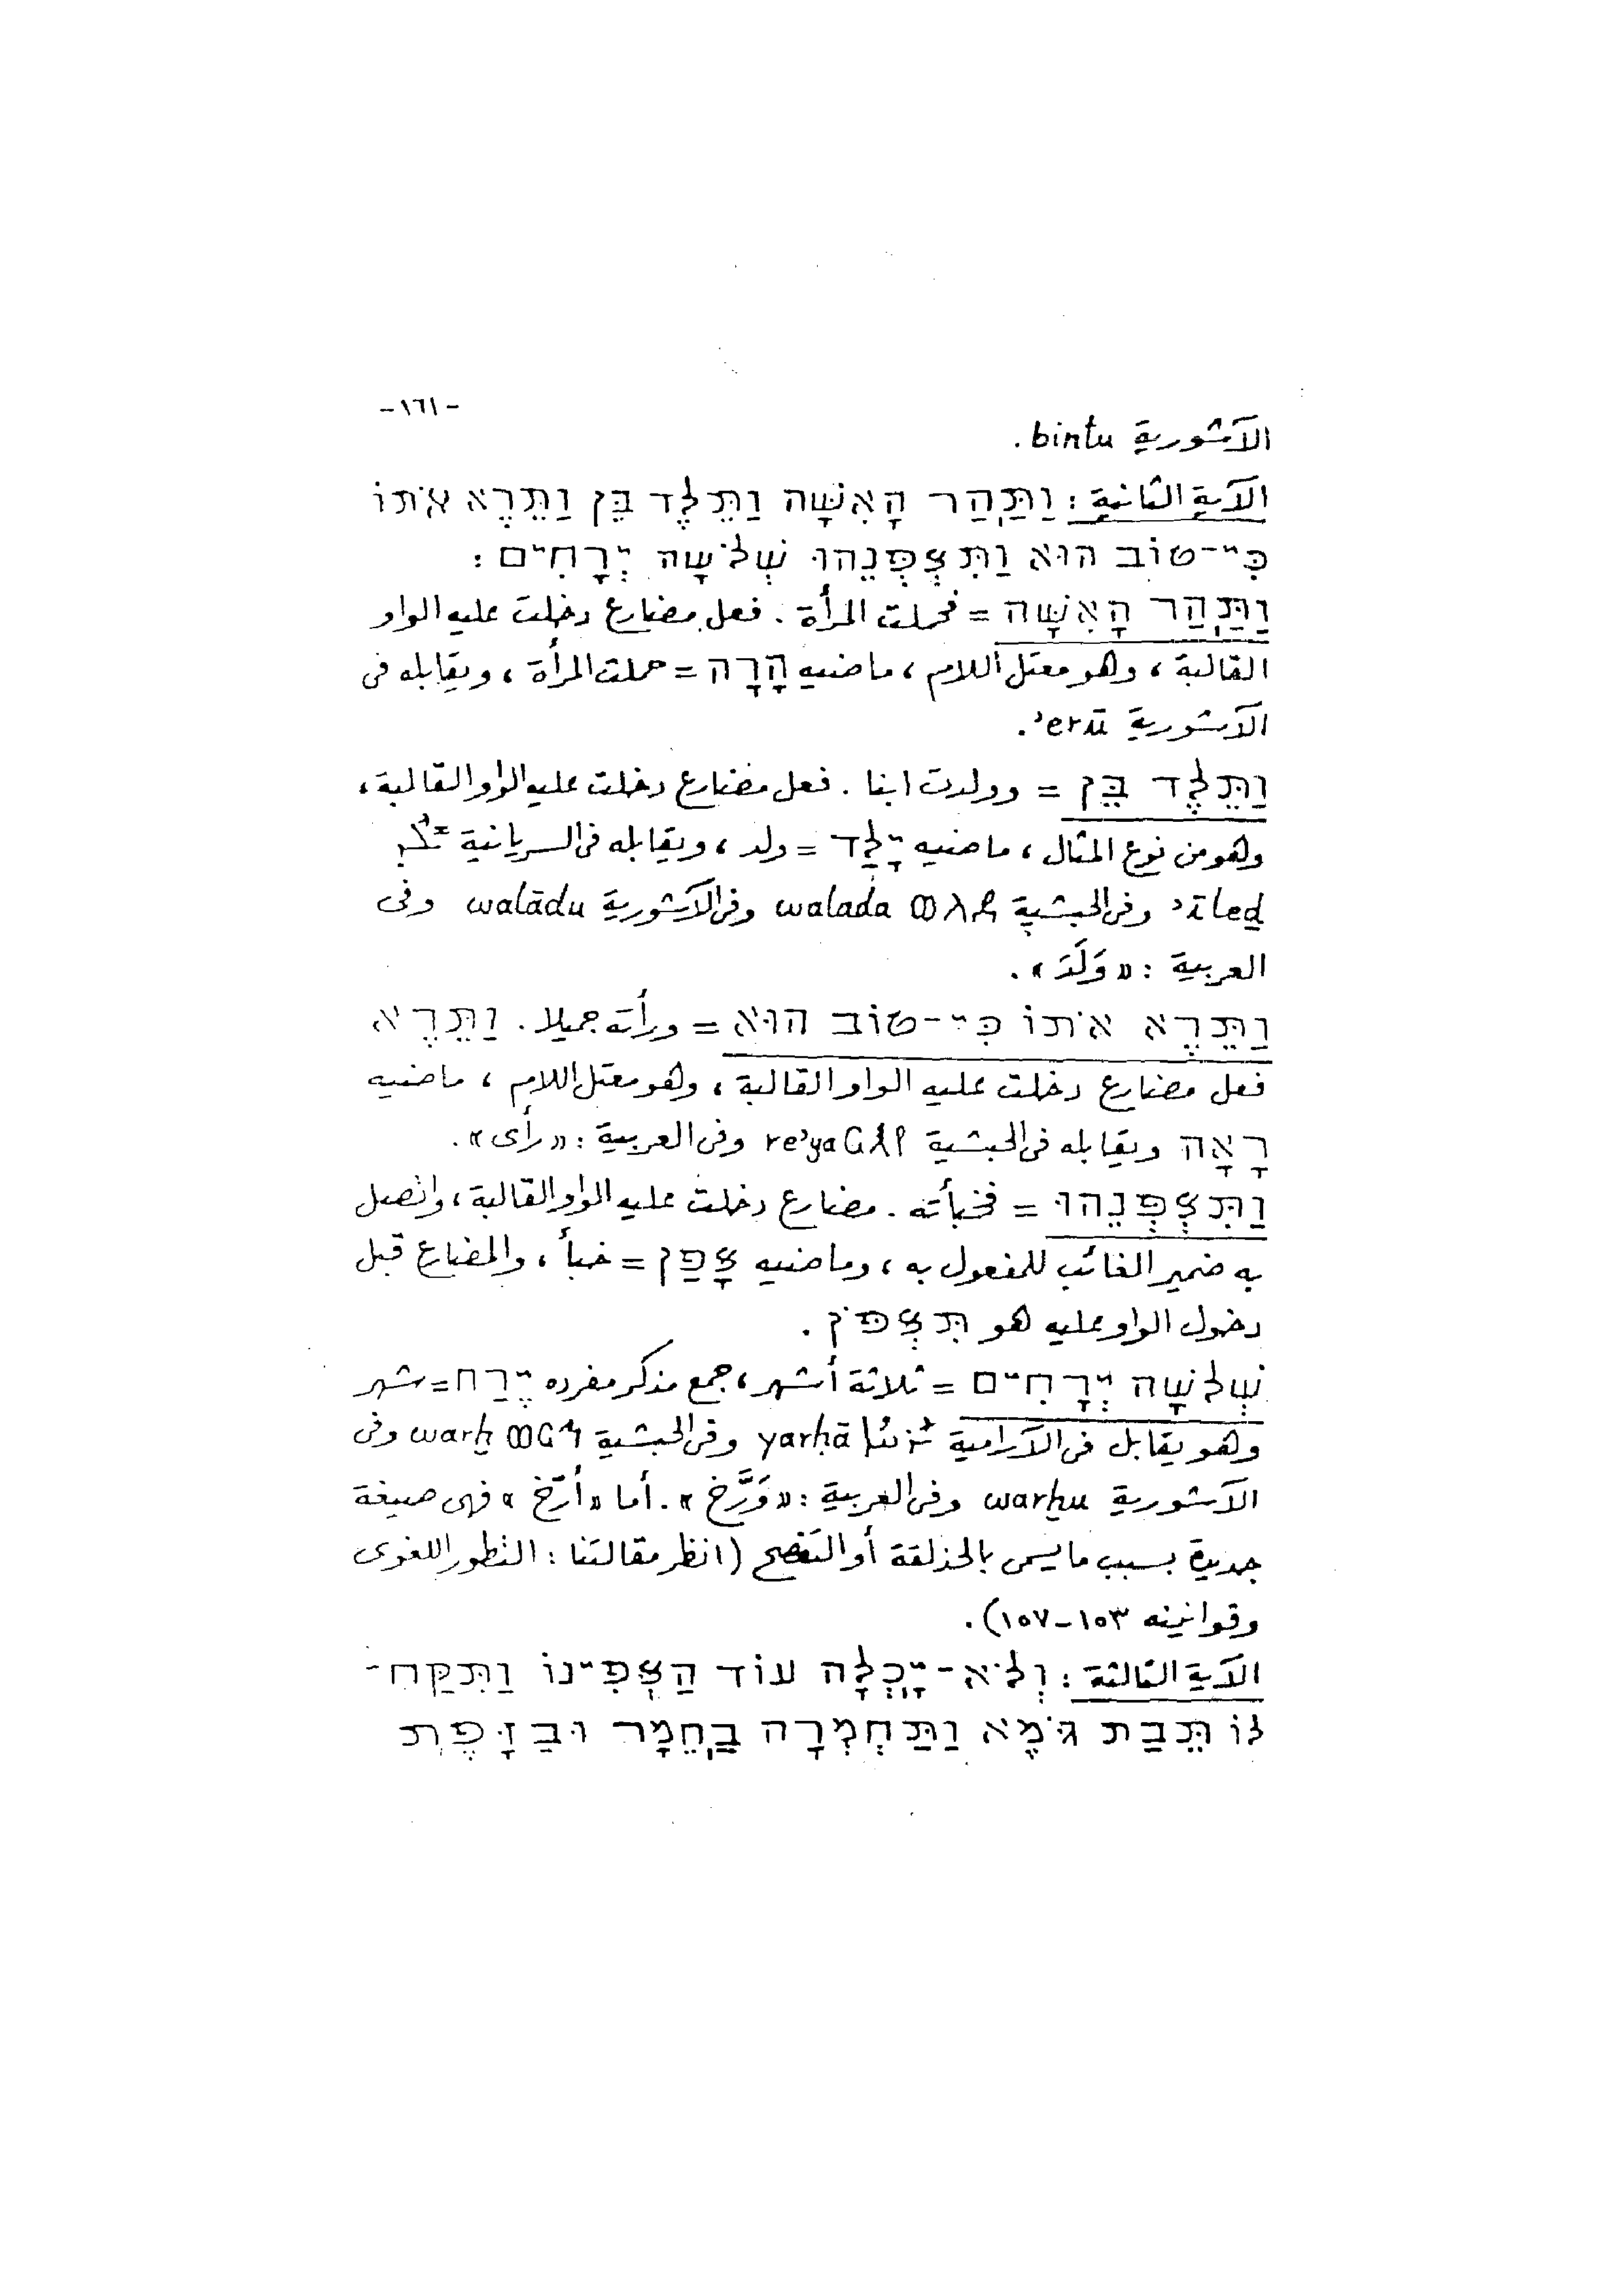 -١٦١-
الآشورية bintu.
الآية الثانية: וַתַּהַר הָאִשָּׁה וַתֵּלֶד בֵּן וַתֵּרֶא אֹתוֹ
כִּי־טוֹב הוּא וַתִּצְפְּנֵהוּ שְׁלֹשָׁה יְרָחִים:
וַתַּהַר הָאִשָּׁה = فحملت المرأة. فعل مضارع دخلت عليه الواو
القالبة، وهو معتل اللام، ماضيه הָרָה = حملت المرأة، ويقابله فى
الآشورية ʾerū.
וַתֵּלֶד בֵּן = وولدت ابنا. فعل مضارع دخلت عليه الواو القالبة،
وهو من نوع المثال، ماضيه יָלַד = ولد، ويقابله فى السريانية
ʾīleḏ وفى الحبشية ወለደ walada وفى الآشورية walādu وفى
العربية: «وَلَدَ».
וַתֵּרֶא אֹתוֹ כִּי־טוֹב הוּא = ورأته جميلا. וַתֵּרֶא
فعل مضارع دخلت عليه الواو القالبة، وهو معتل اللام، ماضيه
רָאָה ويقابله فى الحبشية ርእየ reʾya وفى العربية: «رأى».
וַתִּצְפְּנֵהוּ = فخبأته. مضارع دخلت عليه الواو القالبة، واتصل
به ضمير الغائب للمفعول به، وماضيه צָפַן = خبأ، والمضارع قبل
دخول الواو عليه هو תִּצְפֹּן.
שְׁלֹשָׁה יְרָחִים = ثلاثة أشهر، جمع مذكر مفرده יֶרַח = شهر
وهو يقابل فى الآرامية ܝܰܪܚܳܐ yarḥā وفى الحبشية ወርኅ warḫ وفى
الآشورية warḫu وفى العربية: «وَرَّخ». أما «أرّخ» فهى صيغة
جديدة بسبب ما يسمى بالحذلقة أو التفصح (انظر مقالتنا: التطور اللغوى
وقوانينه ١٥٣-١٥٧).
الآية الثالثة: וְלֹא־יָכְלָה עוֹד הַצְּפִינוֹ וַתִּקַּח־
לוֹ תֵּבַת גֹּמֶא וַתַּחְמְרָה בַחֵמָר וּבַזָּפֶת